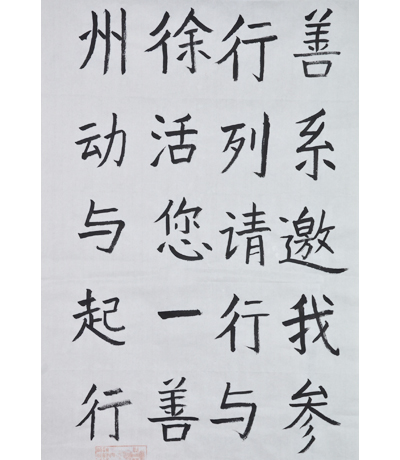 善行徐州
系列活动
邀请您与
我行一起
参与善行